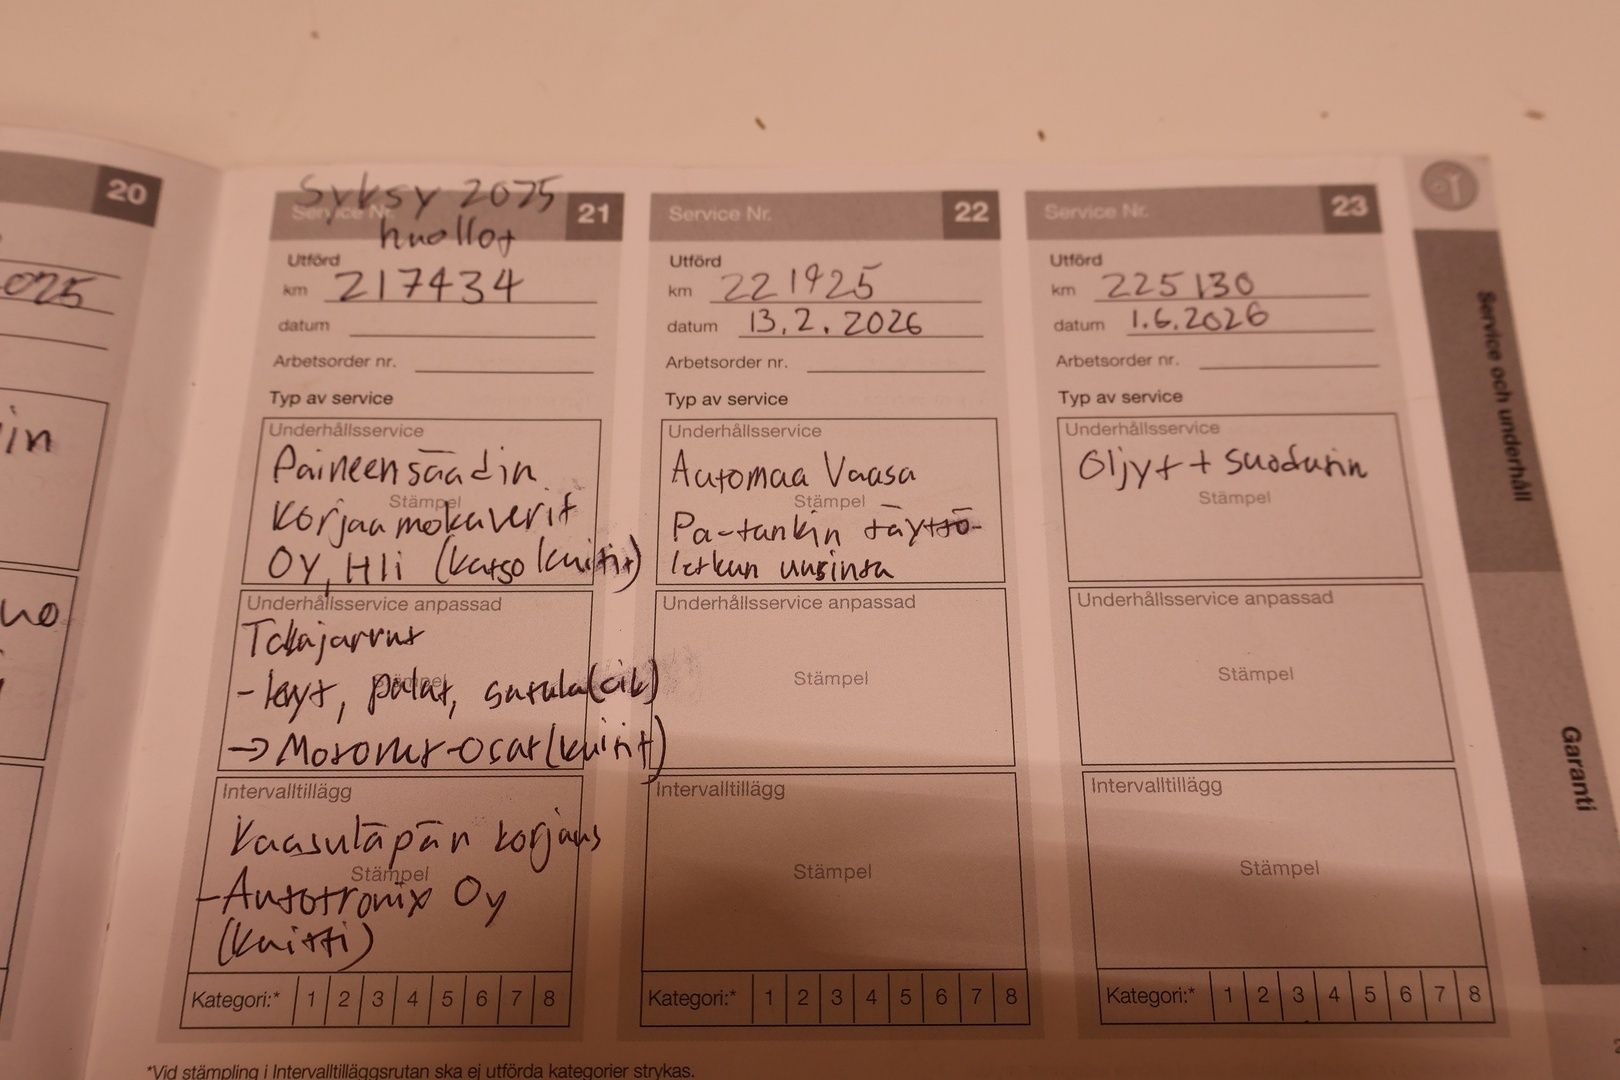 20
025
in
Syksy 2025
Service Nr. 21
huollot
Utförd
km 217434
datum
Arbetsorder nr.
Typ av service
Underhållsservice
Paineensäädin
Stämpel
Korjaamokaverit
OY, Hli (katso kuitit)
Underhållsservice anpassad
Takajarrut
Stämpel
- levyt, palat, satula(oik)
→ Motonet-osat (kuitit)
Intervalltillägg
Kaasuläpän korjaus
Stämpel
- Autotronix Oy
(kuitti)
Kategori:* 1 2 3 4 5 6 7 8
Service Nr. 22
Utförd
km 221925
datum 13.2.2026
Arbetsorder nr.
Typ av service
Underhållsservice
Automaa Vaasa
Stämpel
Pa-tankin täyttö-
letkun uusinta
Underhållsservice anpassad
Stämpel
Intervalltillägg
Stämpel
Kategori:* 1 2 3 4 5 6 7 8
Service Nr. 23
Utförd
km 225130
datum 1.6.2026
Arbetsorder nr.
Typ av service
Underhållsservice
Öljyt + suodatin
Stämpel
Underhållsservice anpassad
Stämpel
Intervalltillägg
Stämpel
Kategori:* 1 2 3 4 5 6 7 8
Service och underhåll
Garanti
*Vid stämpling i Intervalltilläggsrutan ska ej utförda kategorier strykas.